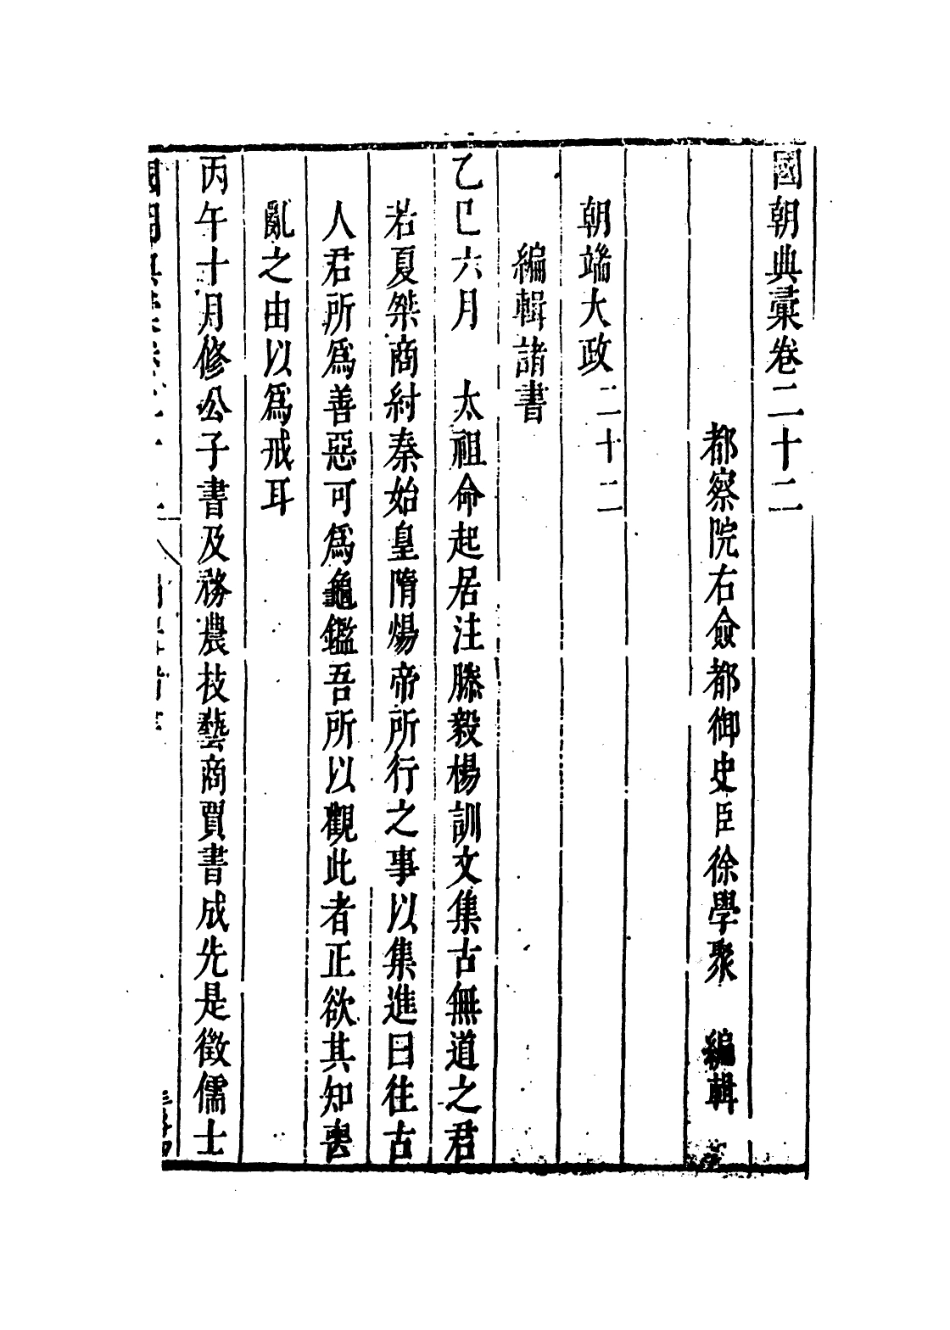 國朝典彙卷二十二
都察院右僉都御史臣徐學聚　編輯
朝端大政二十二
編輯諸書
乙巳六月　太祖命起居注滕毅楊訓文集古無道之君
若夏桀商紂秦始皇隋煬帝所行之事以集進曰往古
人君所為善惡可為龜鑑吾所以觀此者正欲其知喪
亂之由以為戒耳
丙午十月修公子書及務農技藝商賈書成先是徵儒士